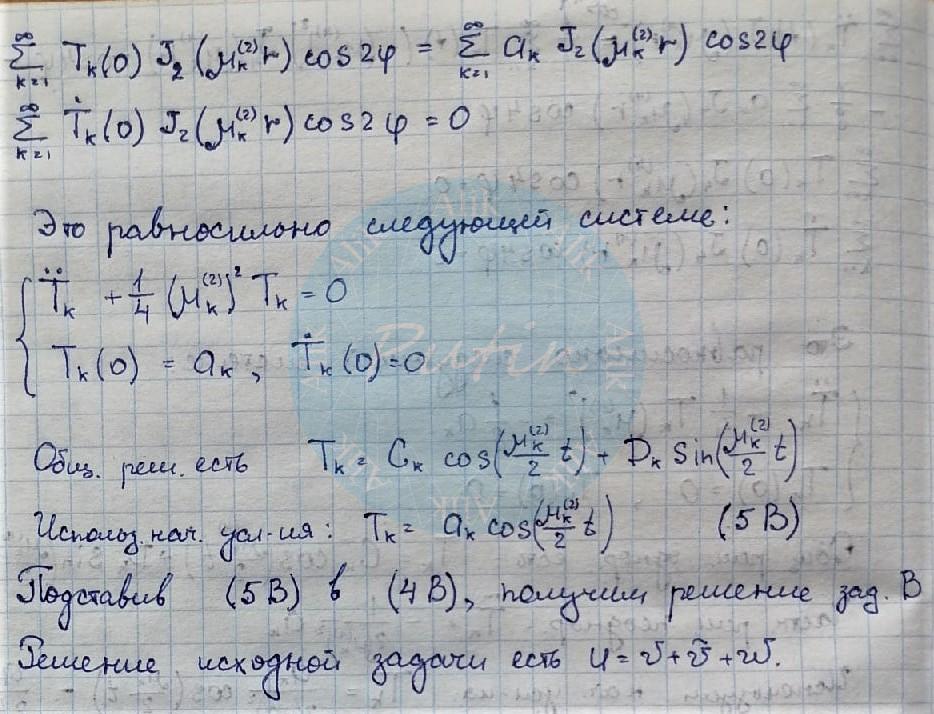 ∞ ∑ k=1 T_k(0) J_2(μ_k^(2) r) cos2φ = ∞ ∑ k=1 a_k J_2(μ_k^(2) r) cos2φ
∞ ∑ k=1 Ṫ_k(0) J_2(μ_k^(2) r) cos2φ = 0
Это равносильно следующей системе:
{ T̈_k + 1/4 (μ_k^(2))^2 T_k = 0
T_k(0) = a_k, Ṫ_k(0)=0
Общ. реш. есть T_k = C_k cos(μ_k^(2)/2 t) + D_k sin(μ_k^(2)/2 t)
Использ. нач. усл-ия: T_k = a_k cos(μ_k^(2)/2 t) (5B)
Подставив (5B) в (4B), получим решение зад. B
Решение исходной задачи есть u = v + ṽ + w.
Putin
Alik